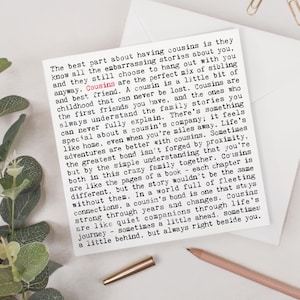 The best part about having cousins is they
know all the embarrassing stories about you,
and they still choose to hang out with you
anyway. Cousins are the perfect mix of sibling
and best friend. A cousin is a little bit of
childhood that can never be lost. Cousins are
the first friends you have, and the ones who
always understand the family stories you
can never fully explain. There's something
special about a cousin's company; it feels
like home, even when you're miles away. life's
adventures are better with cousins. Sometimes
the greatest bond isn't forged by proximity,
but by the simple understanding that you're
both in this crazy family together. Cousins
are like the pages of a book - each chapter is
different, but the story wouldn't be the same
without them. In a world full of fleeting
connections, a cousin's bond is one that stays
strong through years and changes. Cousins
are like quiet companions through life's
journey - sometimes a little ahead, sometimes
a little behind, but always right beside you.